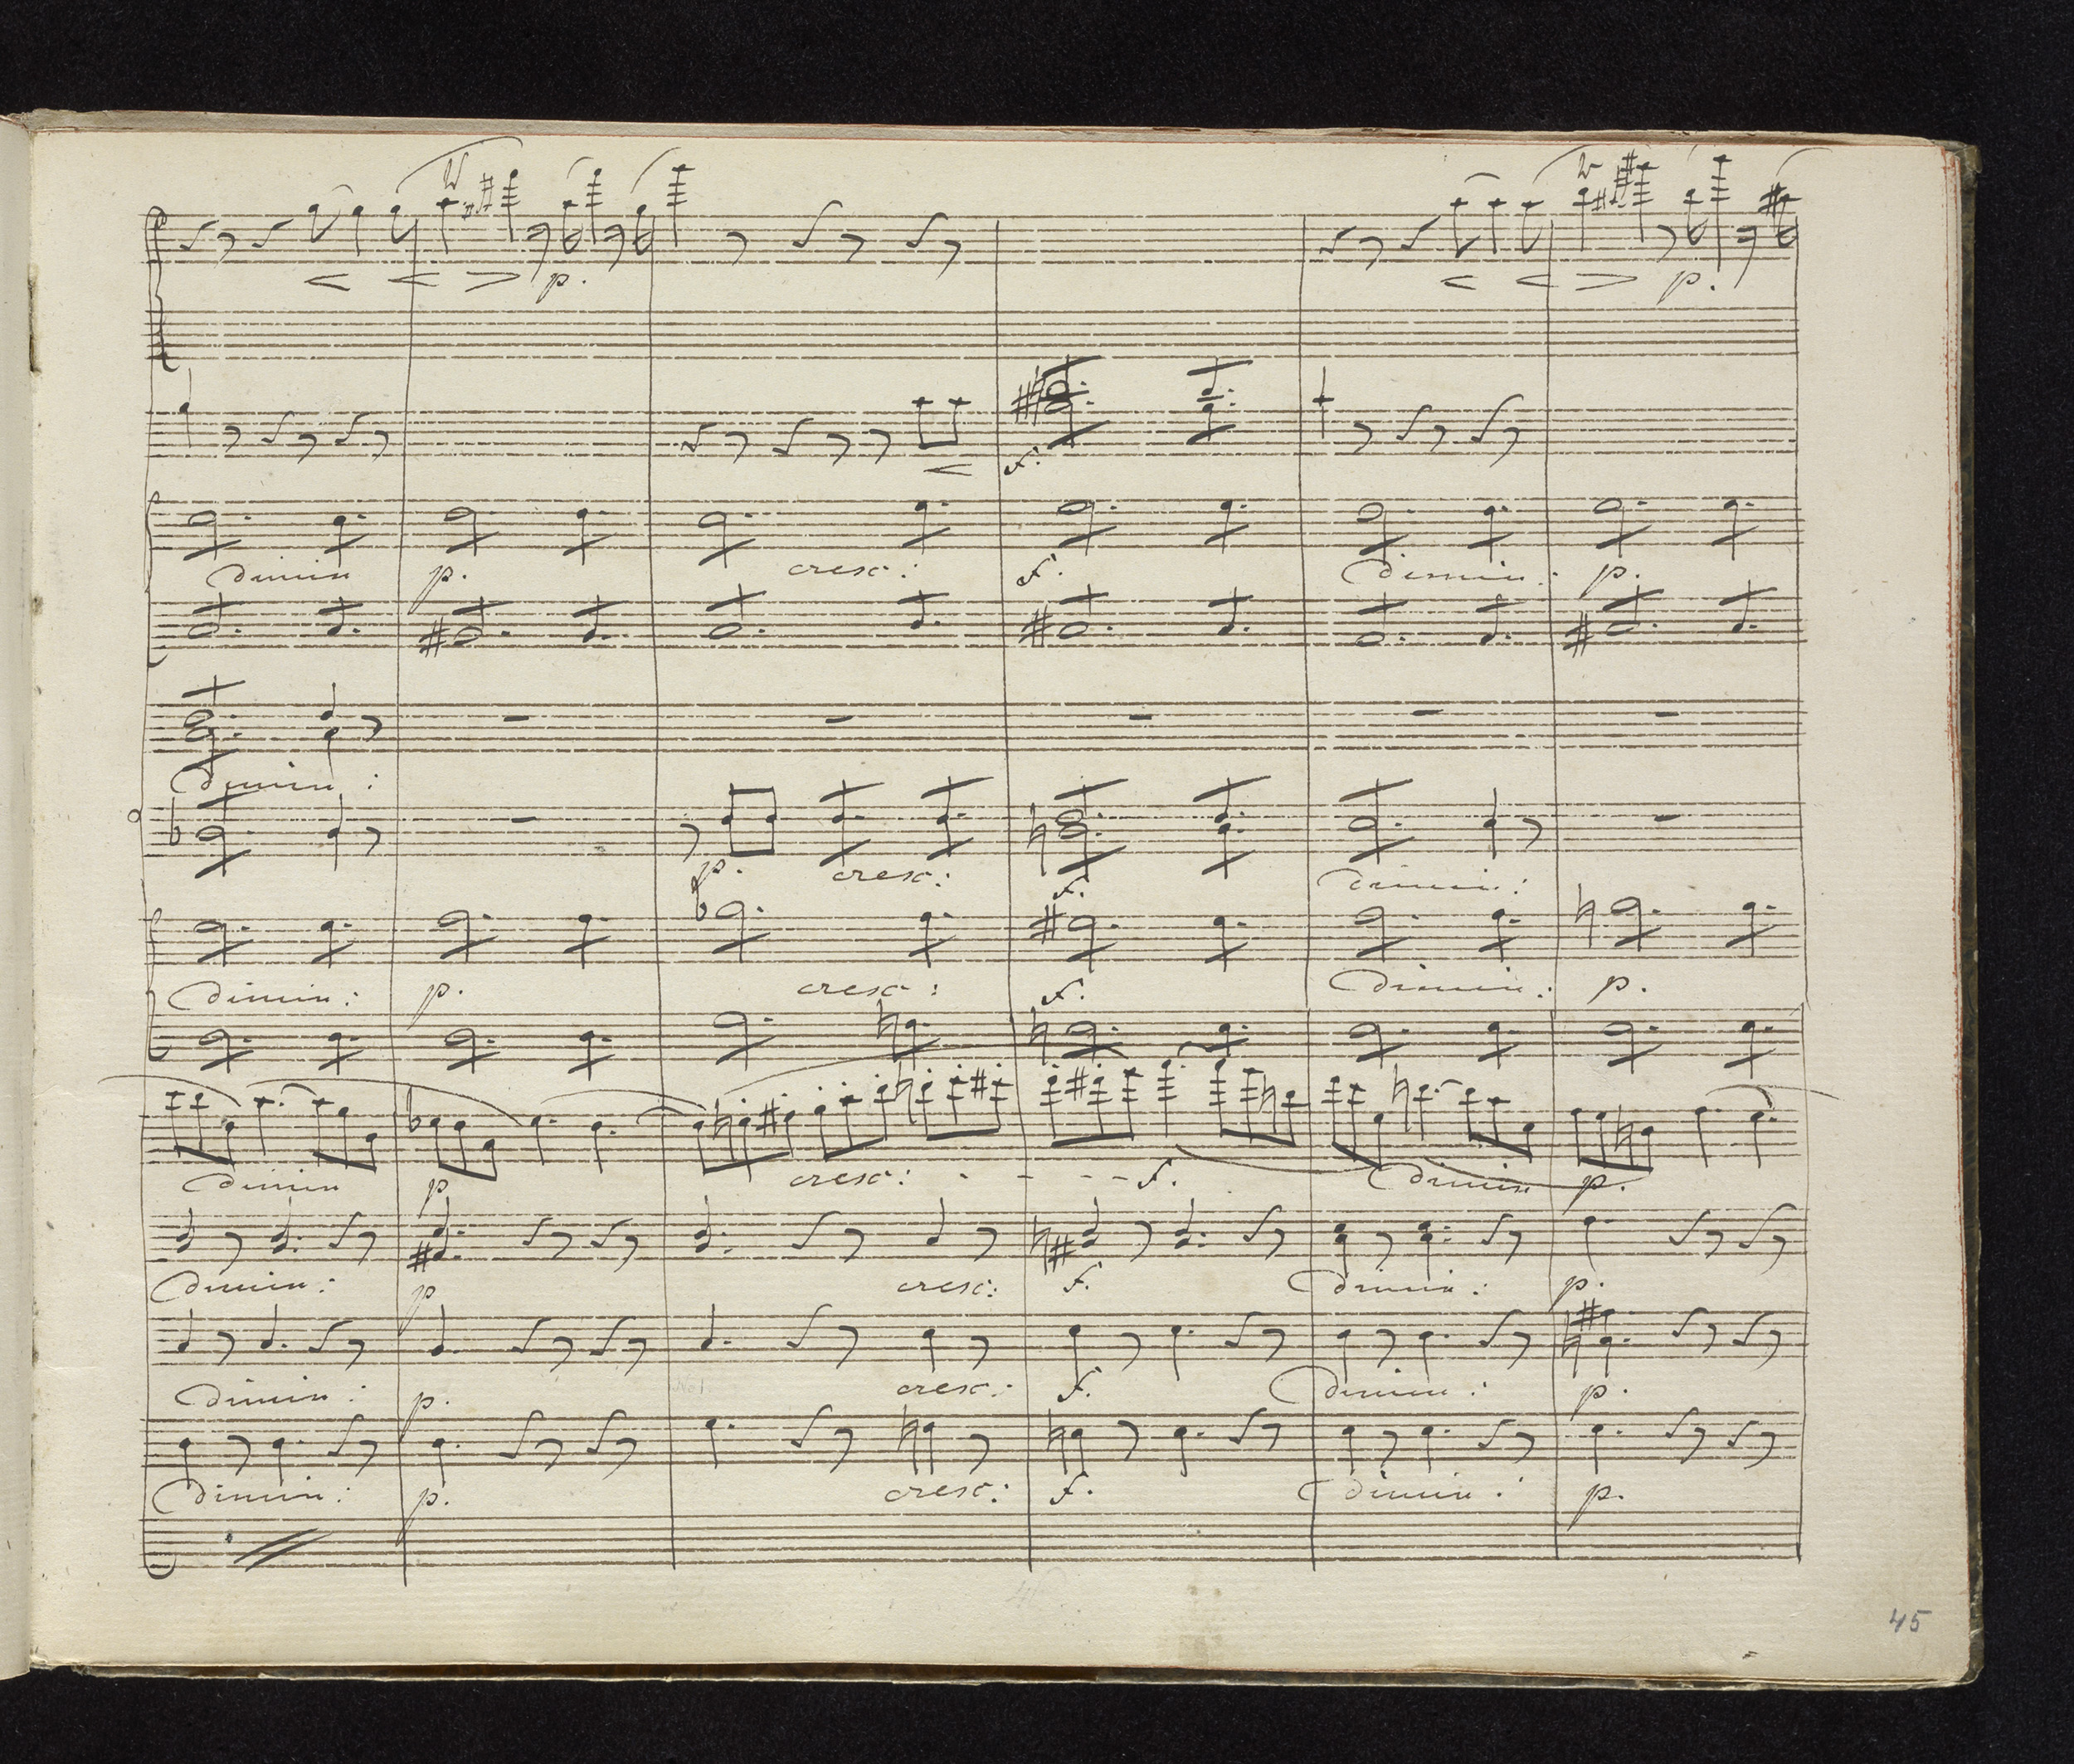 p.
f.
dimin p. cresc: f. dimin: p.
dimin:
p. cresc: f. dimin:
dimin: p. cresc: f. dimin: p.
dimin p cresc: - - - - f. dimin p.
dimin: p cresc: f. dimin: p.
dimin: p. cresc: f. dimin: p.
dimin: p. cresc: f. dimin: p.
45